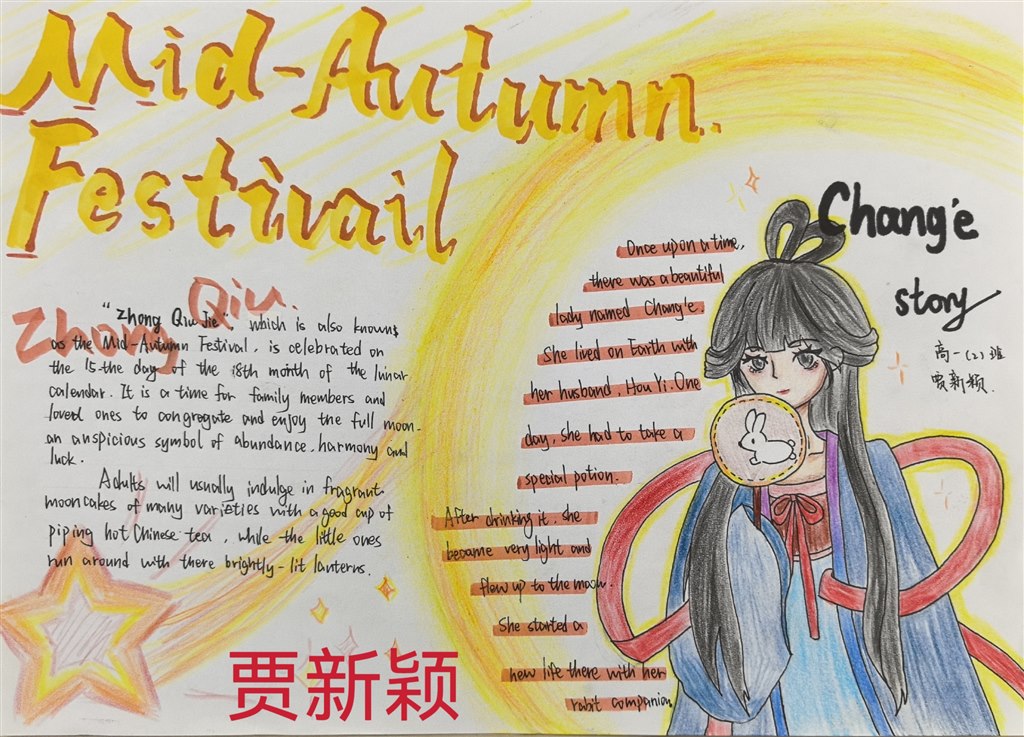 Mid-Autumn
Festivail
Zhong Qiu.
"Zhong Qiu Jie" which is also known
as the Mid-Autumn Festival, is celebrated on
the 15 the day of the 18th month of the lunar
calendar. It is a time for family members and
loved ones to congregate and enjoy the full moon-
an auspicious symbol of abundance, harmony and
luck.
Adults will usually indulge in fragrant
mooncakes of many varieties with a good cup of
piping hot Chinese tea, while the little ones
run around with there brightly-lit lanterns.
Chang'e
story
高一(2)班
贾新颖.
Once upon a time,
there was a beautiful
lady named Chang'e.
She lived on Earth with
her husband, Hou Yi. One
day, she had to take a
special potion.
After drinking it, she
became very light and
flew up to the moon.
She started a
new life there with her
rabit companion.
贾新颖